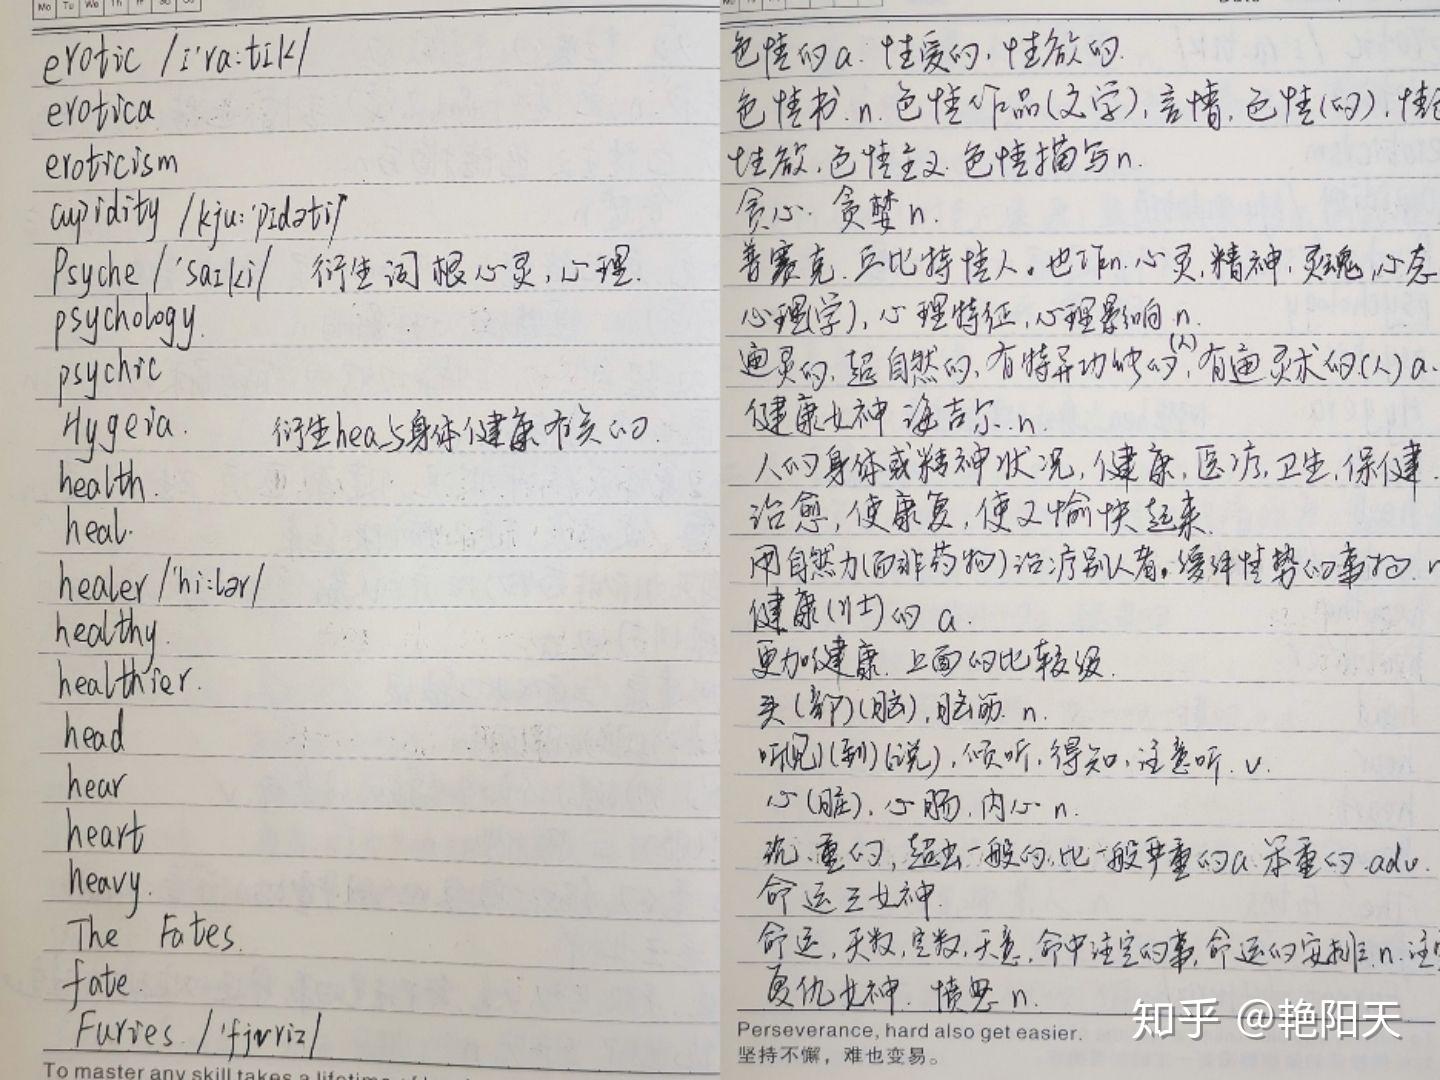 Mo Tu We Th Fr Sa Su
erotic /ɪ'rɑ:tɪk/
erotica
eroticism
cupidity /kju:'pɪdəti/
Psyche /'saɪki/ 衍生词根心灵,心理.
psychology.
psychic
Hygeia. 衍生hea与身体健康有关的.
health.
heal.
healer /'hi:lər/
healthy.
healthier.
head
hear
heart
heavy.
The Fates.
fate.
Furies. /'fjʊriz/
To master any skill takes a lifetime of
色情的a. 性爱的,性欲的.
色情书.n.色情作品(文学),言情,色情(的),
性欲,色情主义.色情描写n.
贪心.贪婪n.
普赛克.丘比特情人。也作n.心灵,精神,灵魂,心态
心理(学),心理特征,心理影响.n.
通灵的,超自然的,有特异功能的(人),有通灵术的(人)a.
健康女神 海吉尔.n.
人的身体或精神状况,健康,医疗,卫生,保健.
治愈,使康复,使又愉快起来.
用自然力(而非药物)治疗别人者。缓解情势的事物.n
健康(壮)的 a.
更加健康.上面的比较级.
头(部)(脑),脑筋.n.
听(见)(到)(说),倾听,得知,注意听.v.
心(脏),心肠,内心n.
沉重的,超出一般的,比一般严重的a.笨重的.adv.
命运三女神.
命运,天数,定数,天意,命中注定的事,命运的安排.n.注定
复仇女神.愤怒n.
Perseverance, hard also get easier.
坚持不懈，难也变易。
知乎 @艳阳天